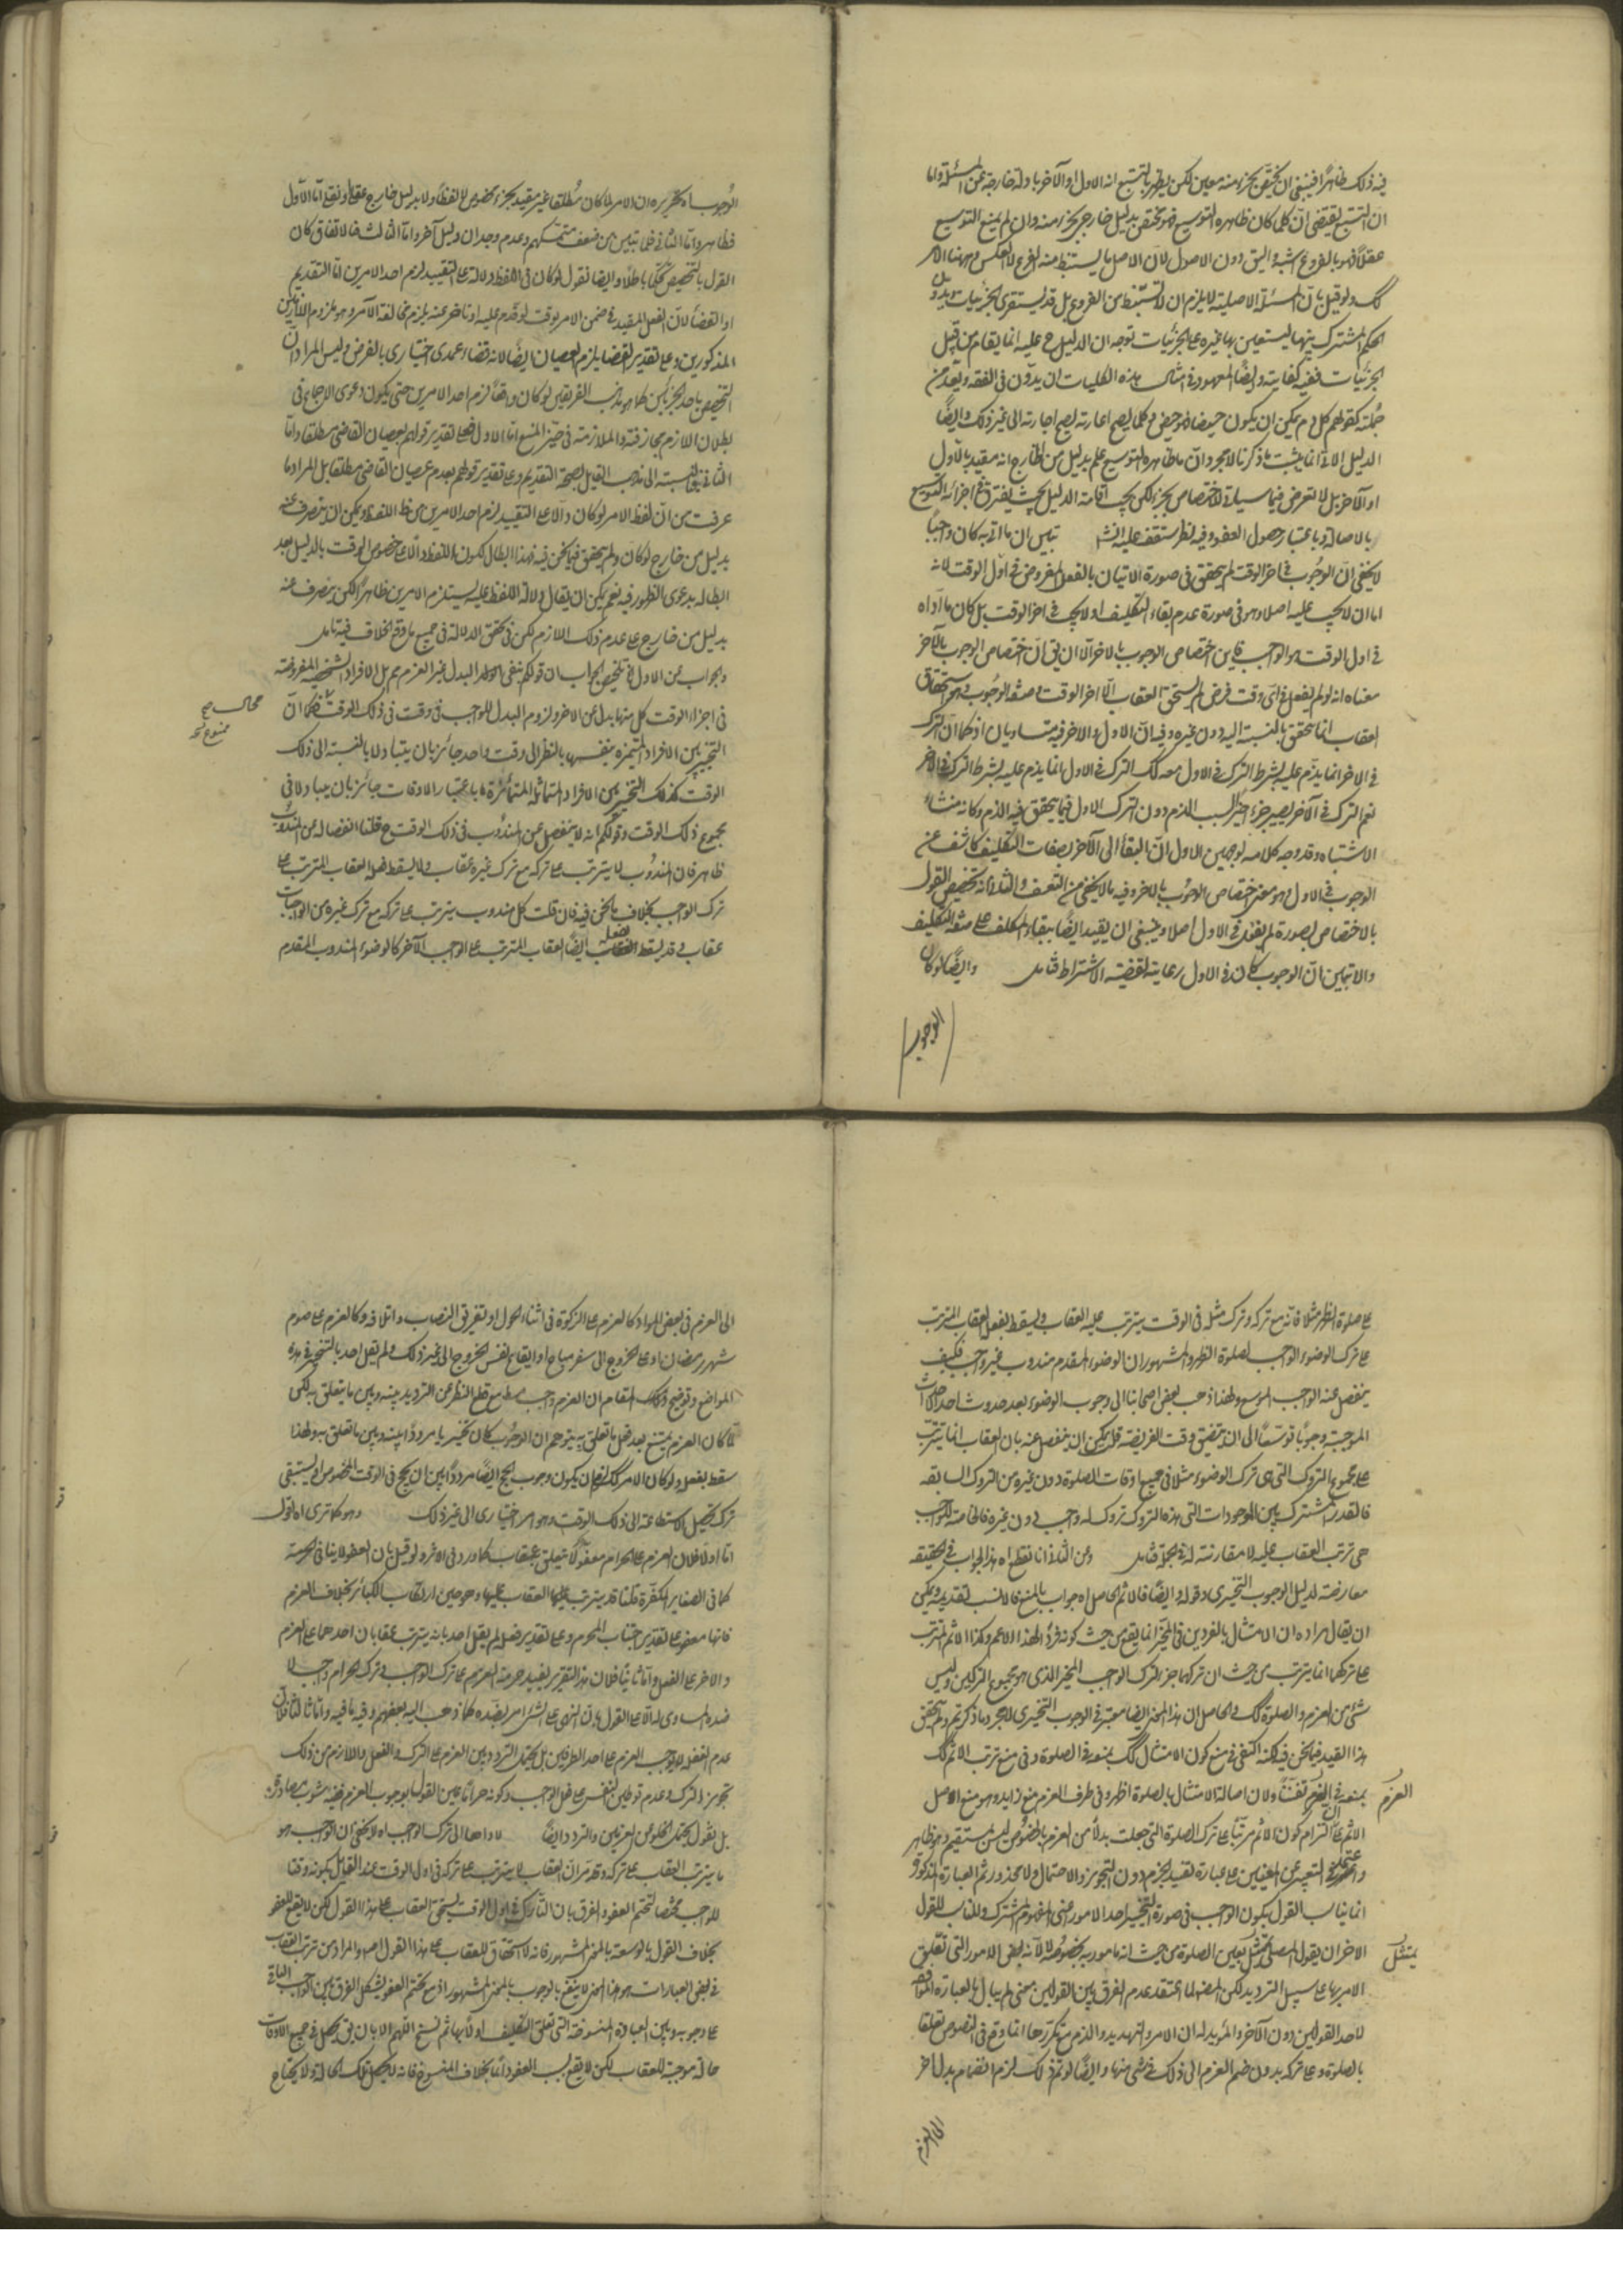 فيه ذلك ظاهرًا فينبغي ان يختص بجزء منه معين لكن يظهر بالتتبع انه الاول او الآخر بادلة خارجة عن المسئلة واما
ان التتبع يقتضي ان كلما كان ظاهره التوسيع فهو يختص بدليل خارجي بجزء منه وان لم يمنع التوسيع
عقلاً فهو بالفروع اشبه واليق دون الاصول لان الاصل ما يستنبط منه الفرع لا العكس وههنا الامر
كك ولو قيل بان المسئلة الاصلية لا يلزم ان لا تستنبط من الفروع بل قد يستقرى الجزئيات ويدون
الحكم المشترك بينها ليستعين بها غيره على الجزئيات توجه ان الدليل ح عليه انما يقام من قبل
الجزئيات ففيه كفاية وايضًا المعهود في امثال هذه الكليات ان يدون في الفقه ويعد من
جملته كقولهم كل دم يمكن ان يكون حيضا فهو حيض وكلما يصح اعارته يصح اجارته الى غير ذلك وايضًا
الدليل الآتي انما يثبت ما ذكرنا لا مجرد ان ما ظاهره التوسيع علم بدليل من الخارج انه مقيد بالاول
او الآخر بل لا تعرض فيما سيأتي للاختصاص بجزء لكن يجب اقامة الدليل بحيث يفترق في اجزائه التوسيع
بالاصالة وباعتبار حصول العفو وفيه نظر ستقف عليه انش تبين ان ما اتى به كان واجبًا
لا يخفى ان الوجوب في آخر الوقت لم يتحقق في صورة الاتيان بالفعل المفروض في اول الوقت لانه
اما ان لا يجب عليه اصلا وهو في صورة عدم بقاء التكليف او لا يجب في آخر الوقت بل كان ما اداه
في اول الوقت هو الواجب فاين اختصاص الوجوب بالاخر الا ان يق ان اختصاص الوجوب بالآخر
معناه انه لو لم يفعل في اي وقت فرض لم يستحق العقاب الا آخر الوقت وصفة الوجوب وهو استحقاق
العقاب انما يتحقق بالنسبة اليه دون غيره وفيه ان الاول والاخر فيه متساويان اذ كما ان الترك
في الاخر انما يذم عليه بشرط الترك في الاول معه كك الترك في الاول انما يذم عليه بشرط الترك في الاخر
نعم الترك في الآخر يصير جزءا اخيرا لسبب الذم دون الترك الاول فبما يتحقق فيه الذم وكانه منشاء
الاشتباه وقد وجه كلامه بوجهين الاول ان البقاء الى الآخر بصفات التكليف كاشف عن
الوجوب في الاول وهو معنى اختصاص الوجوب بالاخر وفيه ما لا يخفى من التعسف والثاني انه تخصيص القول
بالاختصاص بصورة لم يفعل في الاول اصلا وينبغي ان يقيد ايضًا ببقاء المكلف على صفة التكليف
والا تبين ان الوجوب كان في الاول رعاية لقضية الاشتراط فتامل وايضًا لو كان
الوجوب
الوجوب اه تحريره ان الامر لما كان مطلقا غير مقيد بجزء مخصوص لا لفظًا ولا بدليل خارج عقلا ونقلا اما الاول
فظاهر واما الثاني فلما تبين من ضعف متمسكهم وعدم وجدان دليل آخر واما الثالث فبالاتفاق كان
القول بالتخصيص تحكمًا باطلاً وايضا نقول لو كان في اللفظ دلالة على التقييد لزم احد الامرين اما التقديم
او القضاء لان الفعل المقيد في ضمن الامر بوقت لو قدم عليه او تاخر عنه يلزم مخالفة الآمر وهو ملزوم اللازمين
المذكورين وعلى تقدير القضا يلزم العصيان ايضًا لانه قضاء عمدي اختياري بالفرض وليس المراد ان
التخصيص باحد الجزئين كما هو مذهب الفريقين لو كان واقعًا لزم احد الامرين حتى يكون دعوى الاجماع في
بطلان اللازم مجازفة والملازمة في حيز المنع اما الاول فعلى تقدير قولهم بعصيان القاضي مطلقا واما
الثاني فبالنسبة الى مذهب القايل بصحة التقديم وعلى تقدير قولهم بعدم عصيان القاضي مطلقا بل المراد ما
عرفت من ان لفظ الامر لو كان دالا على التقييد لزم احد الامرين من حاظ اللفظ ويمكن ان يتصرف عنه
بدليل من خارج لو كان ولم يتحقق فيما نحن فيه فهذا ابطال لكون اللفظ دالًا على خصوص الوقت بالدليل بعد
ابطاله بدعوى الظهور فيه نعم يمكن ان يقال دلالة اللفظ عليه يستلزم الامرين ظاهرًا لكن يتصرف عنه
بدليل من خارج على عدم ذلك اللازم لكن في تحقق الدلالة في جميع ما وقع الخلاف فيه تامل
والجواب عن الاول اه تلخيص الجواب ان قولكم ينفي الحكم البدل غير العزم مم بل الافراد الشخصية المفروضة
في اجزاء الوقت كل منها بدل عن الاخر ولزوم البدل للواجب في وقت في ذلك الوقت مم فكما ان
محال صح
ممنوع نخ
التخيير بين الافراد المتميزة بنفسها بالنظر الى وقت واحد جائز بان يتبادلا بالنسبة الى ذلك
الوقت كذلك التخيير بين الافراد المتماثلة المتمايزة باعتبار الاوقات جائز بان يتبادلا في
مجموع ذلك الوقت وقولكم انه لا ينفصل عن المندوب في ذلك الوقت مم قلنا انفصاله عن المندوب
ظاهر فان المندوب لا يترتب على تركه مع ترك غيره عقاب ولا يسقط فعله العقاب المترتب على
ترك الواجب بخلاف ما نحن فيه فان قلت كل مندوب يترتب على تركه مع ترك غيره من الواجبات
عقاب في قد يسقط بفعله ايضًا العقاب المترتب على الواجب الآخر كالوضوء المندوب المقدم
على صلوة الظهر مثلا فانه مع تركه وترك مثله في الوقت يترتب عليه العقاب ويسقط بفعله العقاب المترتب
على ترك الوضوء الواجب لصلوة الظهر والمشهور ان الوضوء المقدم مندوب غير واجب فكيف
ينفصل عنه الواجب الموسع ولهذا ذهب بعض اصحابنا الى وجوب الوضوء بعد حدوث احد الاحداث
الموجبة وجوبًا موسعًا الى ان يتضيق وقت الفريضة قلت يمكن ان ينفصل عنه بان العقاب انما يترتب
على مجموع التروك التي هي ترك الوضوء مثلا في جميع اوقات الصلوة دون غيره من التروك السابقة
فالقدر المشترك بين الموجودات التي هذه التروك تروك له واجب دون غيره فالخاصة للواجب
هي ترتب العقاب عليه لا مقارنته له في الجملة فتامل وعن الثاني انا نقطع اه هذا الجواب في الحقيقة
معارضة لدليل الوجوب التخييري وقوله وايضًا فالاثم الحاصل اه جواب بالمنع فالانسب تقديمه ويمكن
ان يقال مراده ان الامتثال بالفردين في المخير انما يقع من حيث كونه فردًا لهذا الاعم وكذا الاثم المترتب
على تركهما انما يترتب من حيث ان تركهما جزء لترك الواجب المخير الذي هو مجموع التركين وليس
شيء من العزم والصلوة كك والحاصل ان هذا المعنى ايضا معتبر في الوجوب التخييري لا مجرد ما ذكرتم ولم يتحقق
هذا القيد فيما نحن فيه لكنه اكتفى في منع كون الامتثال كك بمنعه في الصلوة وفي منع ترتب الاثم كك
بمنعه في العزم تفننًا ولان اصالة الامتثال بالصلوة اظهر وفي طرف العزم منع زايد وهو منع اصل
العزم
الاثم على ان التزام كون الاثم مرتبًا على ترك الصلوة التي جعلت بدلاً من العزم بالخصوص ليس بمستقيم وهو ظاهر
واعتمد في التعبير عن المعنيين على عبارة تفيد الجزم دون التجويز والاحتمال ولا محذور ثم العبارة المذكورة
انما يناسب القول بكون الواجب في صورة التخيير احد الامور اعني المفهوم المشترك والمناسب للقول
الاخر ان يقول المصلي يمتثل بعين الصلوة من حيث انه مامور به بخصوصه لا لانه بعض الامور التي تعلق
يمتثل
الامر بها على سبيل الترديد لكن المصنف لما اعتقد عدم الفرق بين القولين بمعنى لم يبال بالعبارة الموافقة
لاحد القولين دون الآخر والمؤيد له ان الامر والتهديد والذم مع تكررها انما وقع في النصوص تعلقا
بالصلوة وعلى تركه بدون ضم العزم الى ذلك في شيء منها وايضًا لو تم ذلك لزم انضمام بدل اخر
الى العزم
الى العزم في بعض المواد كالعزم على الزكوة في اثناء الحول او تفريق النصاب واتلافه وكالعزم على صوم
شهر رمضان او على الخروج الى سفر مباح او ايقاع نفس الخروج الى غير ذلك ولم يقل احد بالتخيير في هذه
المواضع وتوضيح ذلك المقام ان العزم واجب مطلقا مع قطع النظر عن الترديد بينه وبين ما يتعلق به لكن
لما كان العزم يمتنع بعد فعل ما تعلق به يتوهم ان الوجوب كان تخييريا مرددًا بينه وبين ما تعلق به ولهذا
سقط بفعله ولو كان الامر كك لزم ان يكون وجوب الحج ايضًا مرددًا بين ان يحج في الوقت المخصوص او يستبقي
ترك تحصيل الاستطاعة الى ذلك الوقت وهو امر اختياري الى غير ذلك وهو كما ترى اه اقول
اما اولا فلان العزم على الحرام معفو لا يتعلق به عقاب كما ورد في الاثر ولو قيل بان العفو لا ينافي الحرمة
كما في الصغاير المكفرة قلنا قد يترتب عليها العقاب عليها وهو حين ارتكاب الكبائر بخلاف العزم
فانها معفو على تقدير اجتناب المحرم وعلى تقدير فعله لم يقل احد بانه يترتب عقابان احدهما على العزم
والاخر على الفعل واما ثانيًا فلان هذا التقرير يفيد حرمة العزم على ترك الواجب وترك الحرام واجب لا
ضده المساوي له الا على القول بان النهي عن الشيء امر بضده كما ذهب اليه بعضهم وفيه ما فيه واما ثالثًا فلان
عدم الغفلة لا يوجب العزم على احد الطرفين بل يحتمل التردد بين العزم على الترك والفعل واللازم من ذلك
تجويز الترك وعدم توطين النفس على فعل الواجب وكونه حرامًا عين القول بوجوب العزم ففيه شوب مصادرة
بل نقول يحتمل الخلو عن العزمين والتردد ايضًا لاداها الى ترك الواجب اه لا يخفى ان الواجب هو
ما يترتب العقاب على تركه وقد مر ان العقاب لا يترتب على تركه في اول الوقت عند القايل بكونه وقتا
للواجب مختصا لتحتم العفو والفرق بان التارك في اول الوقت يستحق العقاب على هذا القول لكن لا يقع للعفو
بخلاف القول بالتوسعة بالمعنى المشهور فانه لا استحقاق للعقاب على هذا القول اصلا والمراد من ترتب العقاب
في بعض العبارات هو هذا المعنى لا ينفع بالوجوب بالمعنى المشهور اذ مع تحتم العفو يشكل الفرق بين الواجب الباقي
على وجوبه وبين العبادة المنسوخة التي تعلق التكليف اولًا بها ثم نسخ اللهم الا بان يق يحصل في جميع الاوقات
حالة موجبة للعقاب لكن لا يقع بسبب العفو دائما بخلاف المنسوخ فانه لا يحصل تلك الحالة ولا يحتاج